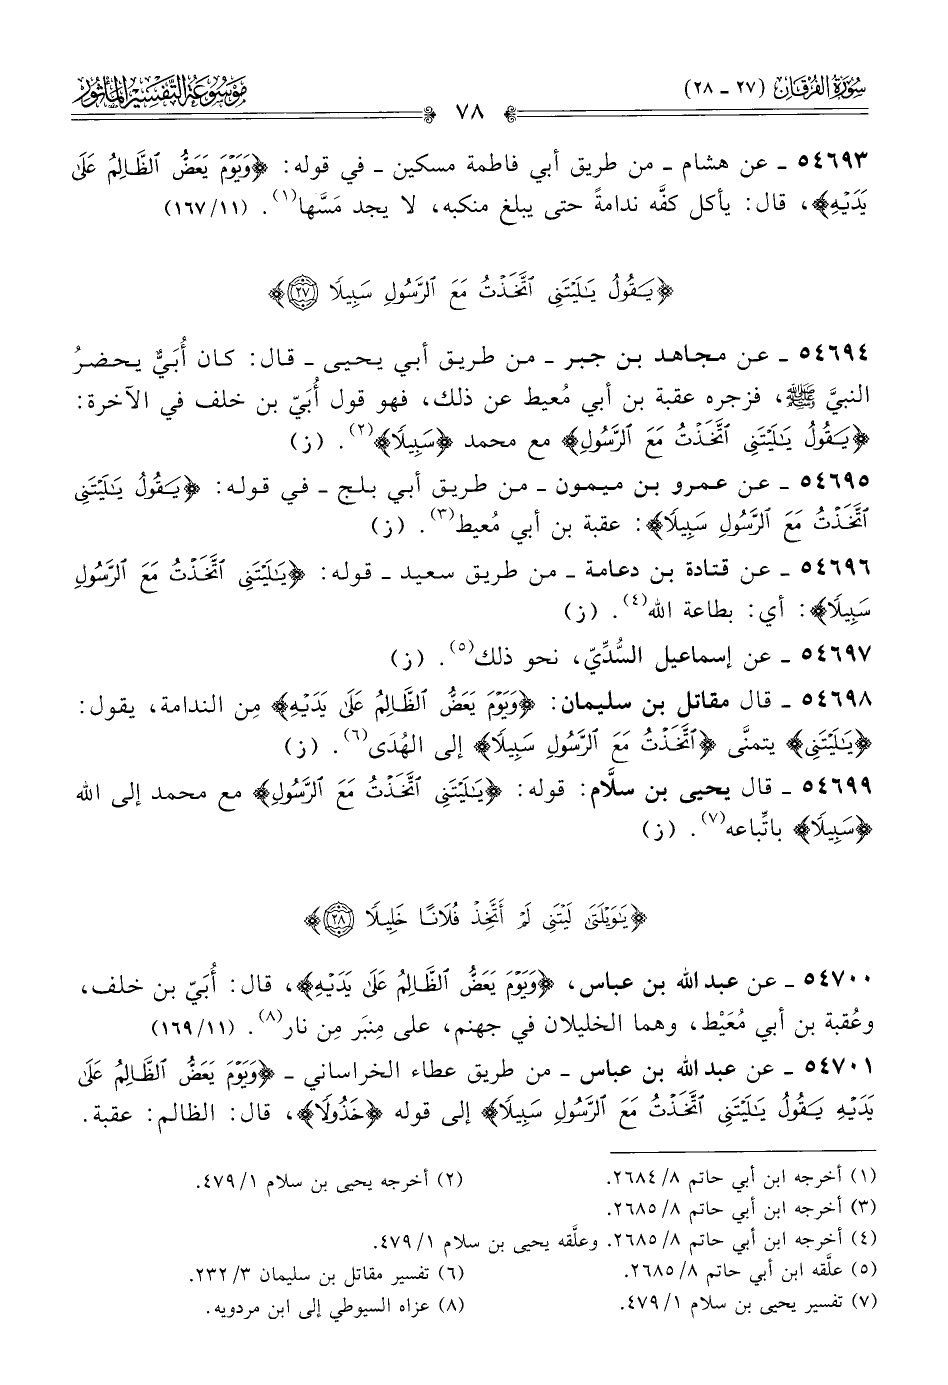 سُورَةُ الفُرْقَان (٢٧ - ٢٨)
٧٨
مَوْسُوعَةُ التَّفْسِيرِ المَأْثُور
٥٤٦٩٣ - عن هشام - من طريق أبي فاطمة مسكين - في قوله: ﴿وَيَوْمَ يَعَضُّ ٱلظَّالِمُ عَلَىٰ
يَدَيْهِ﴾، قال: يأكل كفَّه ندامةً حتى يبلغ منكبه، لا يجد مَسَّها(١). (١١/ ١٦٧)
﴿يَقُولُ يَٰلَيْتَنِى ٱتَّخَذْتُ مَعَ ٱلرَّسُولِ سَبِيلًا ٢٧﴾
٥٤٦٩٤ - عن مجاهد بن جبر - من طريق أبي يحيى - قال: كان أُبَيٌّ يحضرُ
النبيَّ ﷺ، فزجره عقبة بن أبي مُعيط عن ذلك، فهو قول أُبَيّ بن خلف في الآخرة:
﴿يَقُولُ يَٰلَيْتَنِى ٱتَّخَذْتُ مَعَ ٱلرَّسُولِ﴾ مع محمد ﴿سَبِيلًا﴾(٢). (ز)
٥٤٦٩٥ - عن عمرو بن ميمون - من طريق أبي بلج - في قوله: ﴿يَقُولُ يَٰلَيْتَنِى
ٱتَّخَذْتُ مَعَ ٱلرَّسُولِ سَبِيلًا﴾: عقبة بن أبي مُعيط(٣). (ز)
٥٤٦٩٦ - عن قتادة بن دعامة - من طريق سعيد - قوله: ﴿يَٰلَيْتَنِى ٱتَّخَذْتُ مَعَ ٱلرَّسُولِ
سَبِيلًا﴾: أي: بطاعة الله(٤). (ز)
٥٤٦٩٧ - عن إسماعيل السُّدِّيّ، نحو ذلك(٥). (ز)
٥٤٦٩٨ - قال مقاتل بن سليمان: ﴿وَيَوْمَ يَعَضُّ ٱلظَّالِمُ عَلَىٰ يَدَيْهِ﴾ مِن الندامة، يقول:
﴿يَٰلَيْتَنِى﴾ يتمنَّى ﴿ٱتَّخَذْتُ مَعَ ٱلرَّسُولِ سَبِيلًا﴾ إلى الهُدَى(٦). (ز)
٥٤٦٩٩ - قال يحيى بن سلَّام: قوله: ﴿يَٰلَيْتَنِى ٱتَّخَذْتُ مَعَ ٱلرَّسُولِ﴾ مع محمد إلى الله
﴿سَبِيلًا﴾ باتِّباعه(٧). (ز)
﴿يَٰوَيْلَتَىٰ لَيْتَنِى لَمْ أَتَّخِذْ فُلَانًا خَلِيلًا ٢٨﴾
٥٤٧٠٠ - عن عبد الله بن عباس، ﴿وَيَوْمَ يَعَضُّ ٱلظَّالِمُ عَلَىٰ يَدَيْهِ﴾، قال: أُبَيّ بن خلف،
وعُقبة بن أبي مُعَيْط، وهما الخليلان في جهنم، على مِنبَر مِن نار(٨). (١١/ ١٦٩)
٥٤٧٠١ - عن عبد الله بن عباس - من طريق عطاء الخراساني - ﴿وَيَوْمَ يَعَضُّ ٱلظَّالِمُ عَلَىٰ
يَدَيْهِ يَقُولُ يَٰلَيْتَنِى ٱتَّخَذْتُ مَعَ ٱلرَّسُولِ سَبِيلًا﴾ إلى قوله ﴿خَذُولًا﴾، قال: الظالم: عقبة.
(١) أخرجه ابن أبي حاتم ٨/ ٢٦٨٤.
(٢) أخرجه يحيى بن سلام ١/ ٤٧٩.
(٣) أخرجه ابن أبي حاتم ٨/ ٢٦٨٥.
(٤) أخرجه ابن أبي حاتم ٨/ ٢٦٨٥. وعلَّقه يحيى بن سلام ١/ ٤٧٩.
(٥) علَّقه ابن أبي حاتم ٨/ ٢٦٨٥.
(٦) تفسير مقاتل بن سليمان ٣/ ٢٣٢.
(٧) تفسير يحيى بن سلام ١/ ٤٧٩.
(٨) عزاه السيوطي إلى ابن مردويه.